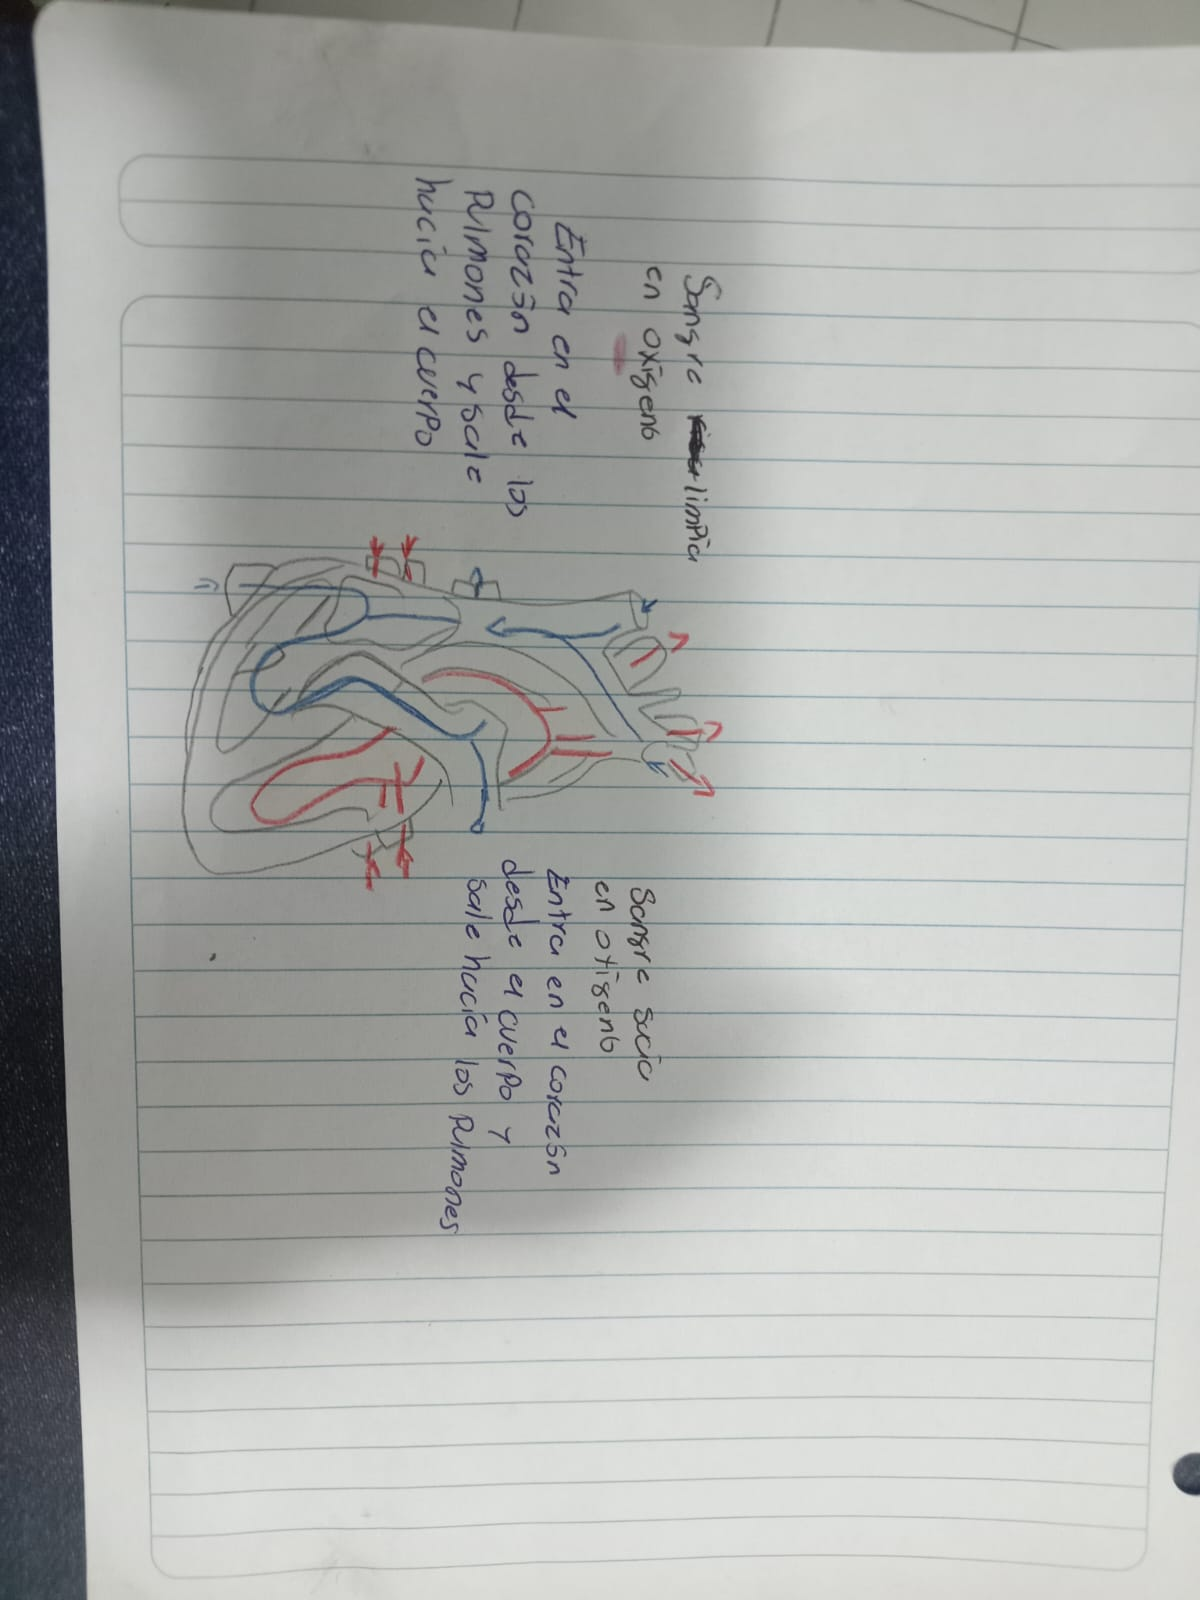 Sangre limpia
en oxígeno
Entra en el
corazón desde los
Pulmones y sale
hacía el cuerpo
Sangre sucia
en oxígeno
Entra en el corazón
desde el cuerpo y
sale hacía los Pulmones